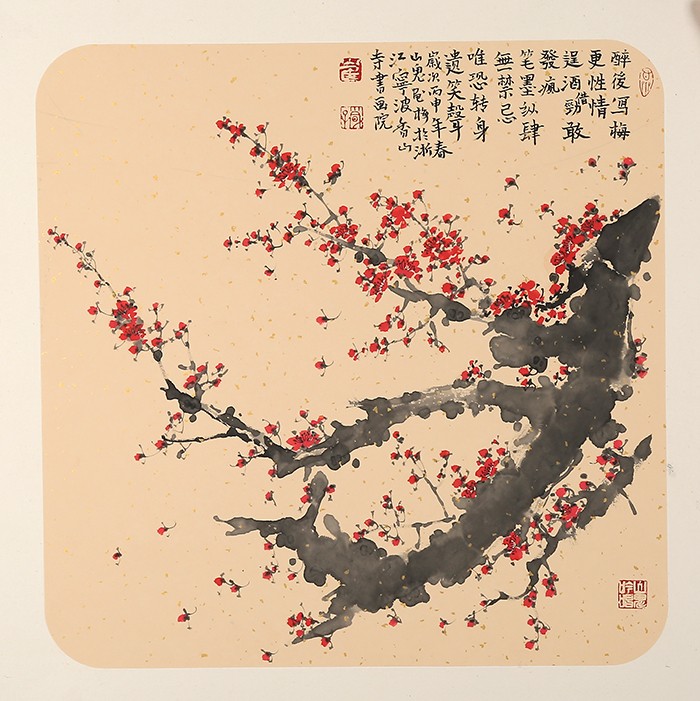 醉後寫梅
更性情
逞酒借勁敢
發瘋
笔墨纵肆
無禁忌
唯恐转身
遺笑聲耳
歲次丙申年春
山鬼梅於浙
江寧波香山
寺書画院